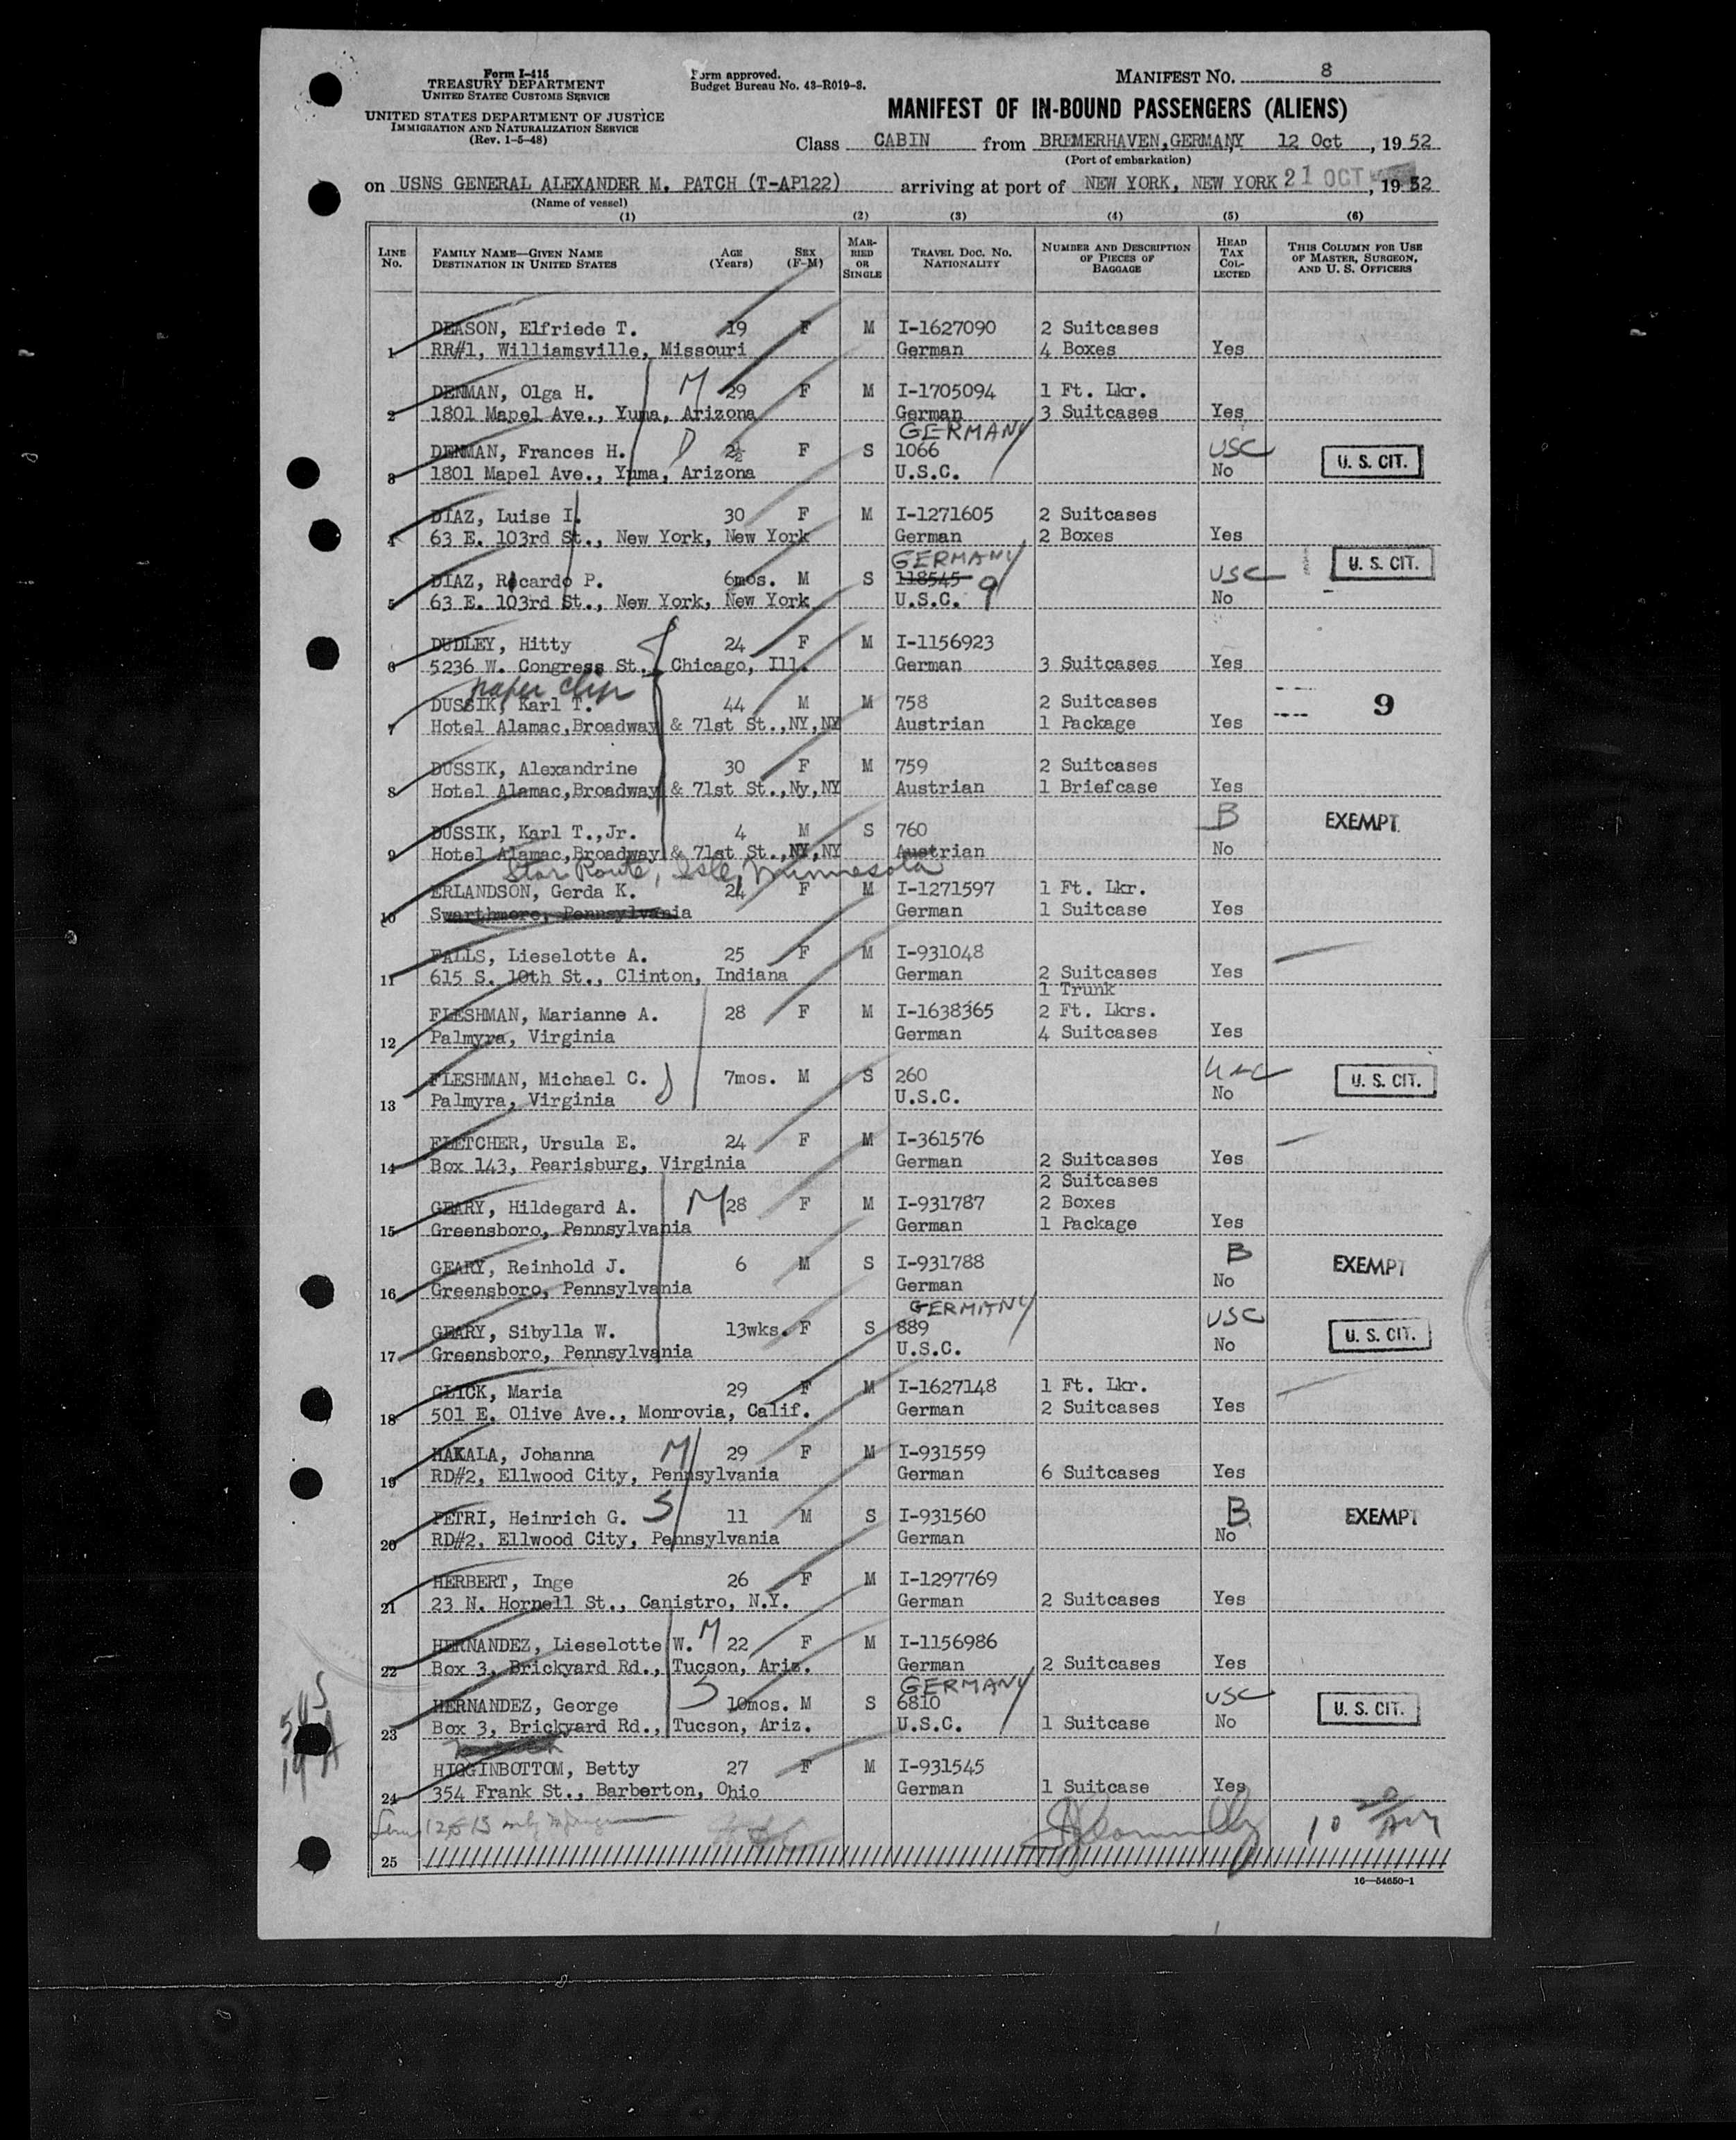 Form I-415
TREASURY DEPARTMENT
UNITED STATES CUSTOMS SERVICE
UNITED STATES DEPARTMENT OF JUSTICE
IMMIGRATION AND NATURALIZATION SERVICE
(Rev. 1-5-48)
Form approved.
Budget Bureau No. 43-R019-3.
MANIFEST NO. 8
MANIFEST OF IN-BOUND PASSENGERS (ALIENS)
Class CABIN from BREMERHAVEN,GERMANY 12 Oct, 1952
(Port of embarkation)
on USNS GENERAL ALEXANDER M. PATCH (T-AP122) arriving at port of NEW YORK, NEW YORK 21 OCT, 1952
(Name of vessel)
(1) (2) (3) (4) (5) (6)
LINE NO. FAMILY NAME—GIVEN NAME DESTINATION IN UNITED STATES AGE (Years) SEX (F-M) MARRIED OR SINGLE TRAVEL DOC. NO. NATIONALITY NUMBER AND DESCRIPTION OF PIECES OF BAGGAGE HEAD TAX COLLECTED THIS COLUMN FOR USE OF MASTER, SURGEON, AND U. S. OFFICERS
DEASON, Elfriede T. 19 F M I-1627090 2 Suitcases
1 RR#1, Williamsville, Missouri German 4 Boxes Yes
DENMAN, Olga H. M 29 F M I-1705094 1 Ft. Lkr.
2 1801 Mapel Ave., Yuma, Arizona German 3 Suitcases Yes
GERMANY
DENMAN, Frances H. D 2½ F S 1066 USC U. S. CIT.
3 1801 Mapel Ave., Yuma, Arizona U.S.C. No
DIAZ, Luise I. 30 F M I-1271605 2 Suitcases
4 63 E. 103rd St., New York, New York German 2 Boxes Yes
GERMANY
DIAZ, Ricardo P. 6mos. M S 118545 USC U. S. CIT.
5 63 E. 103rd St., New York, New York U.S.C. 9 No
DUDLEY, Hitty 24 F M I-1156923
6 5236 W. Congress St., Chicago, Ill. German 3 Suitcases Yes
paper clip
DUSSIK, Karl T. 44 M M 758 2 Suitcases 9
7 Hotel Alamac,Broadway & 71st St.,NY,NY Austrian 1 Package Yes
DUSSIK, Alexandrine 30 F M 759 2 Suitcases
8 Hotel Alamac,Broadway & 71st St.,Ny,NY Austrian 1 Briefcase Yes
DUSSIK, Karl T.,Jr. 4 M S 760 B EXEMPT
9 Hotel Alamac,Broadway & 71st St.,NY,NY Austrian No
Star Route, Isle, Minnesota
ERLANDSON, Gerda K. 24 F M I-1271597 1 Ft. Lkr.
10 Swarthmore, Pennsylvania German 1 Suitcase Yes
FALLS, Lieselotte A. 25 F M I-931048
11 615 S. 10th St., Clinton, Indiana German 2 Suitcases Yes
1 Trunk
FLESHMAN, Marianne A. 28 F M I-1638365 2 Ft. Lkrs.
12 Palmyra, Virginia German 4 Suitcases Yes
FLESHMAN, Michael C. 7mos. M S 260 USC U. S. CIT.
13 Palmyra, Virginia U.S.C. No
FLETCHER, Ursula E. 24 F M I-361576
14 Box 143, Pearisburg, Virginia German 2 Suitcases Yes
2 Suitcases
GEARY, Hildegard A. M 28 F M I-931787 2 Boxes
15 Greensboro, Pennsylvania German 1 Package Yes
GEARY, Reinhold J. 6 M S I-931788 B EXEMPT
16 Greensboro, Pennsylvania German No
GERMANY
GEARY, Sibylla W. 13wks. F S 889 USC U. S. CIT.
17 Greensboro, Pennsylvania U.S.C. No
GLICK, Maria 29 F M I-1627148 1 Ft. Lkr.
18 501 E. Olive Ave., Monrovia, Calif. German 2 Suitcases Yes
HAKALA, Johanna M 29 F M I-931559
19 RD#2, Ellwood City, Pennsylvania German 6 Suitcases Yes
PETRI, Heinrich G. S 11 M S I-931560 B EXEMPT
20 RD#2, Ellwood City, Pennsylvania German No
HERBERT, Inge 26 F M I-1297769
21 23 N. Hornell St., Canistro, N.Y. German 2 Suitcases Yes
HERNANDEZ, Lieselotte W. M 22 F M I-1156986
22 Box 3, Brickyard Rd., Tucson, Ariz. German 2 Suitcases Yes
GERMANY
HERNANDEZ, George S 10mos. M S 6810 USC U. S. CIT.
23 Box 3, Brickyard Rd., Tucson, Ariz. U.S.C. 1 Suitcase No
HIGGINBOTTOM, Betty 27 F M I-931545
24 354 Frank St., Barberton, Ohio German 1 Suitcase Yes
25
16—54650-1